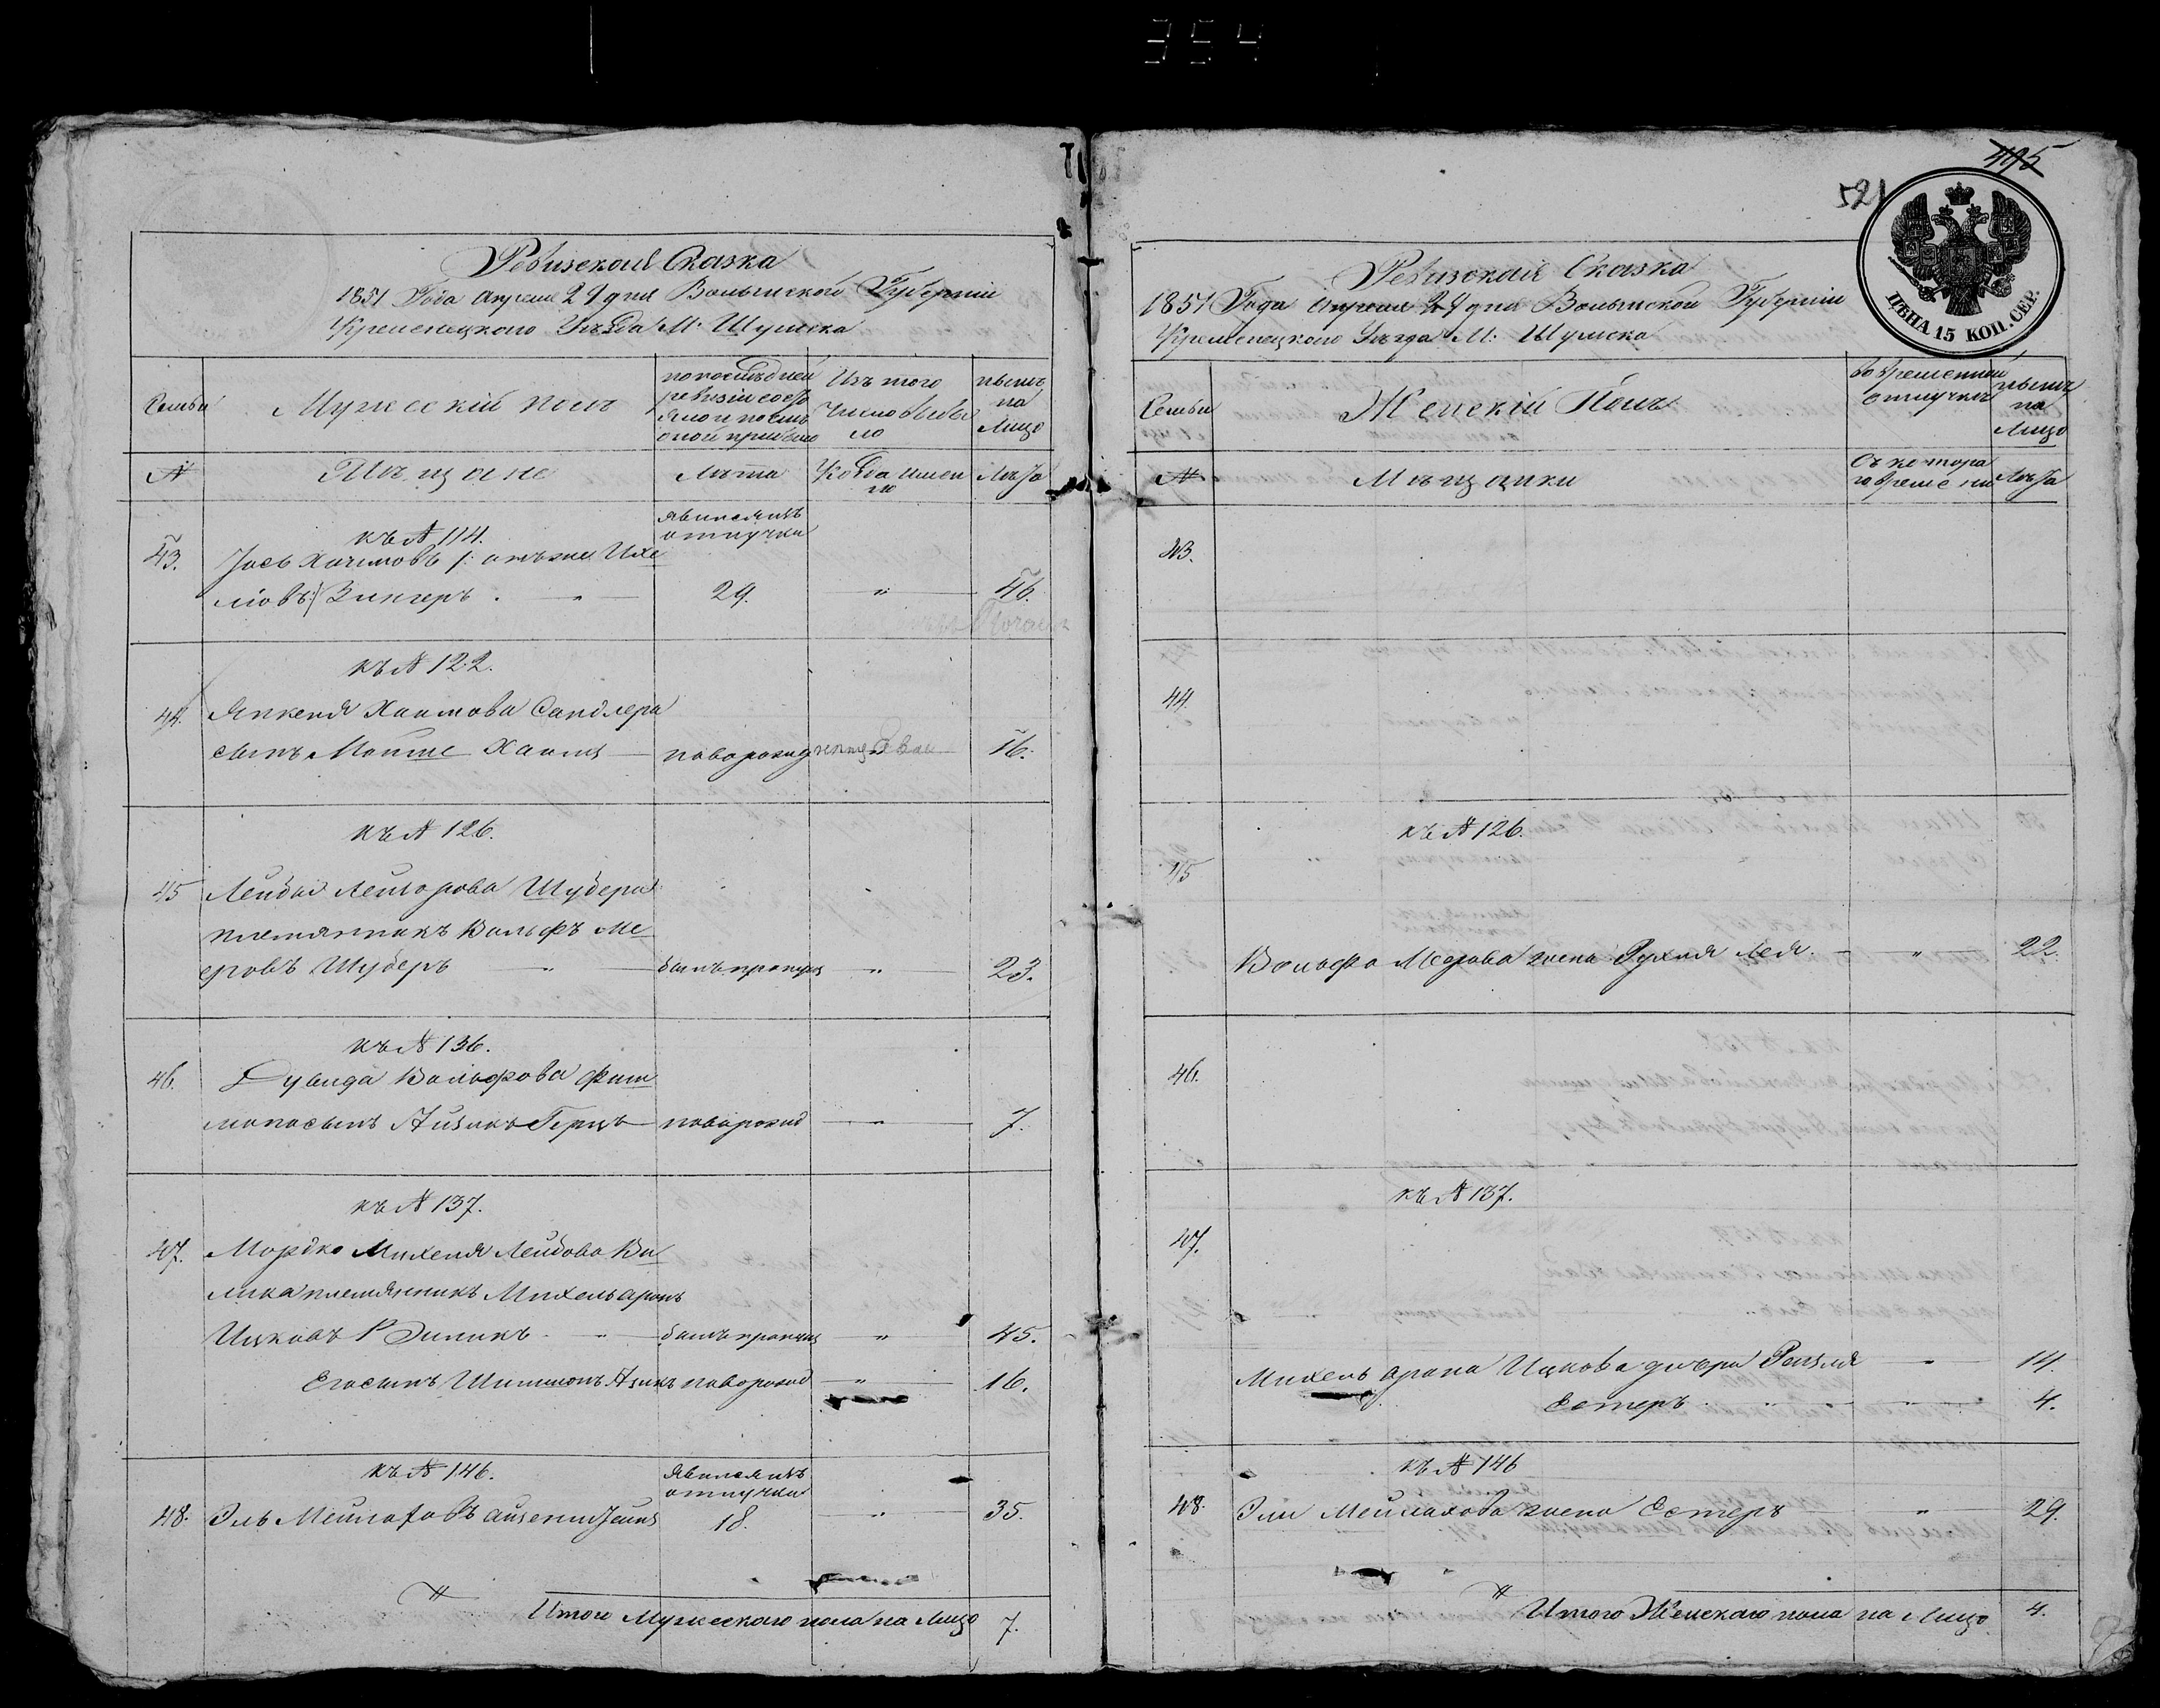 354
Ревизская Сказка
1851 Года Апреля 29 дня Волынской Губерніи
Кременецкого Уѣзда М: Шумска
Семьи
Мужескій полъ
по последней
ревизіи состо
яло и послѣ
оной прибыло
Изъ того
числа выбы
ло
нынѣ
на
Лицо
№
Мѣщане
Лѣта
Когда имен
но
Лѣта
къ № 114.
явился изъ
отлучки
43.
Іось Хаимовъ
Зингеръ . " 29. " 46.
къ № 122.
44. Янкеля Хаимова Сандлера
сынъ Мошко Хаимъ новорожд 16.
къ № 126.
45 Лейбы Лейзорова Шубера
племянникъ Вольфъ Ме
еровъ Шуберъ " былъ пропущ " 23.
къ № 136.
46. Дувида Вольфова Фиш
мана сынъ Айзикъ Герцъ новорожд " 7.
къ № 137.
47. Мордко Михеля Лейбова Ви
лика племянникъ Михель Аронъ
Ицковъ Виликъ " былъ пропущ " 45.
Его сынъ Шимшонъ Айзикъ новорожд " 16.
къ № 146.
явился изъ
отлучки
48. Эль Мейлаховъ 18. " 35.
Итого Мужескаго пола на Лицо 7.
495
521
ЦѢНА 15 КОП. СЕР.
Ревизская Сказка
1851 Года Апреля 29 дня Волынской Губерніи
Кременецкого Уѣзда М: Шумска
Семьи
Женскій Полъ
во временной
отлучкѣ
нынѣ
на
Лицо
№
Мѣщанки
Съ котора
го времени
Лѣта
43.
44.
къ № 126.
45
Вольфа Меерова жена Рухля Лея. " 22.
46.
къ № 137.
47.
Михель Арона Ицкова дочери Рейзля " 14.
Естеръ " " 4.
къ № 146
48. Эли Мейлахова жена Естеръ " 29.
Итого Женскаго пола на Лицо 4.